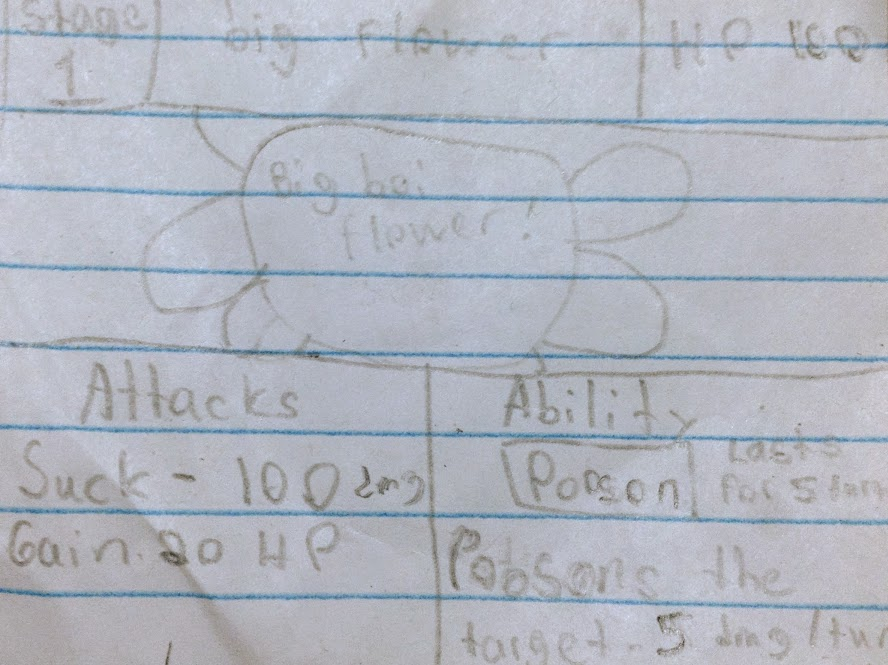 Stage
1
big flower
HP
Big boi
flower!
Attacks
Suck - 100 dmg
Gain 20 HP
Ability
Poison
Lasts
for 5 turn
Poisons the
target - 5 dmg/tur